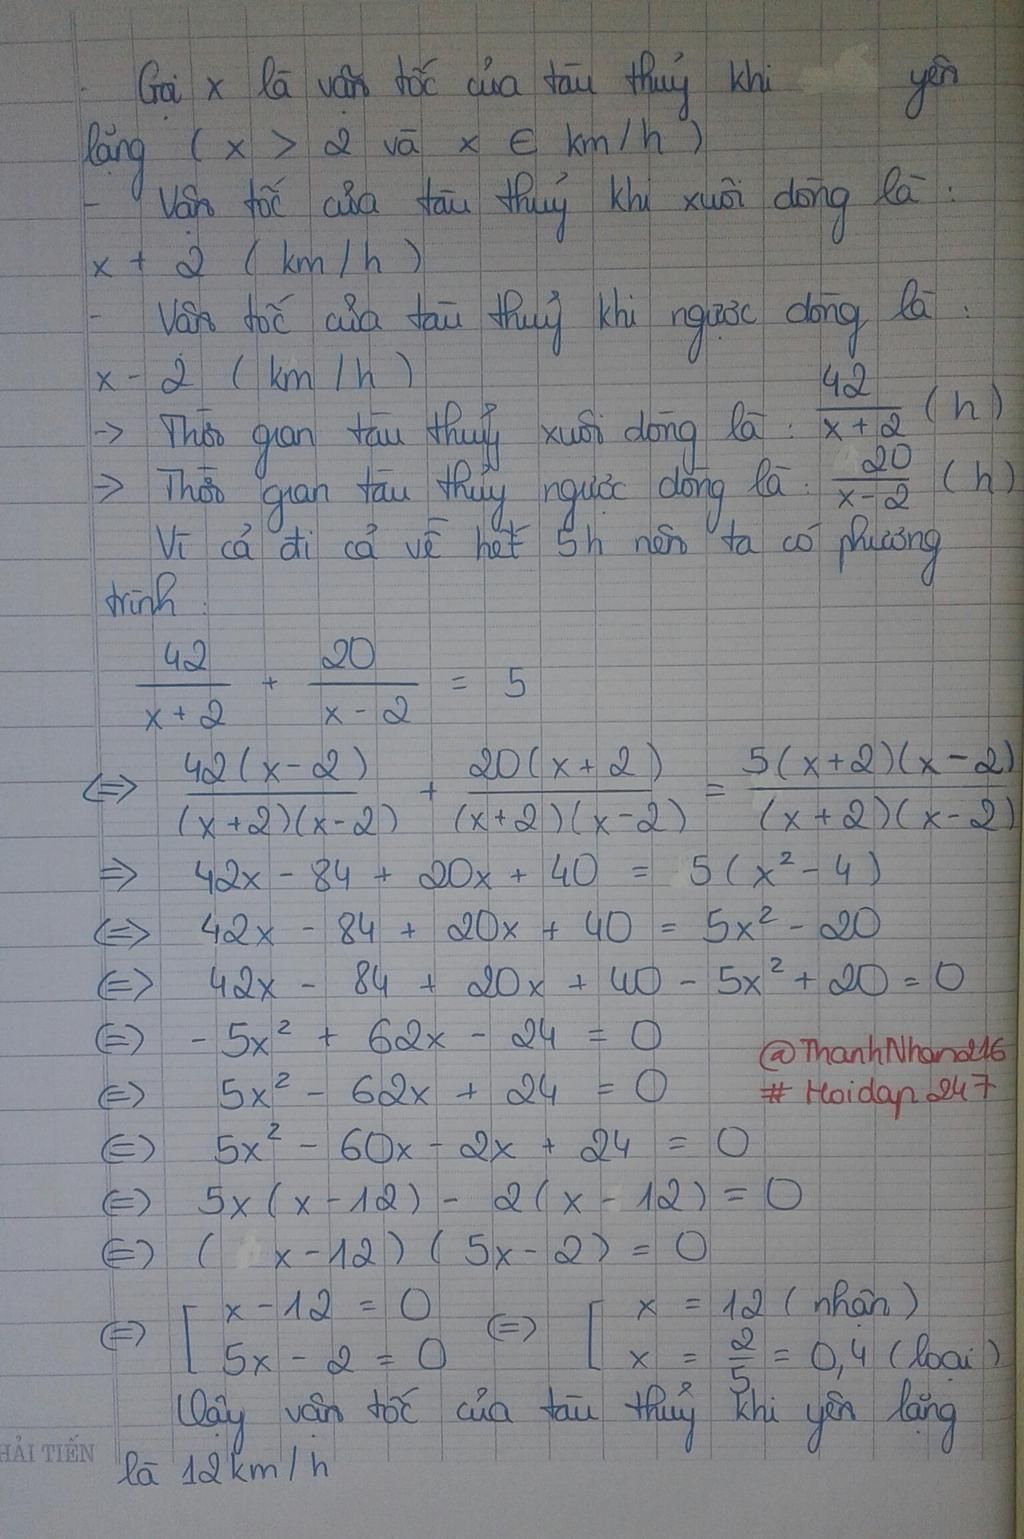 Gọi x là vận tốc của tàu thuỷ khi yên
lặng ( x > 2 và x ∈ km/h )
- Vận tốc của tàu thuỷ khi xuôi dòng là :
x + 2 ( km/h )
- Vận tốc của tàu thuỷ khi ngược dòng là :
x - 2 ( km/h )
-> Thời gian tàu thuỷ xuôi dòng là : 42/(x+2) (h)
-> Thời gian tàu thủy ngược dòng là : 20/(x-2) (h)
Vì cả đi cả về hết 5h nên ta có phương
trình :
42/(x+2) + 20/(x-2) = 5
<=> 42(x-2)/((x+2)(x-2)) + 20(x+2)/((x+2)(x-2)) = 5(x+2)(x-2)/((x+2)(x-2))
=> 42x - 84 + 20x + 40 = 5(x² - 4)
<=> 42x - 84 + 20x + 40 = 5x² - 20
<=> 42x - 84 + 20x + 40 - 5x² + 20 = 0
<=> - 5x² + 62x - 24 = 0
@ThanhNhan216
<=> 5x² - 62x + 24 = 0
# Hoidap247
<=> 5x² - 60x - 2x + 24 = 0
<=> 5x(x-12) - 2(x-12) = 0
<=> (x-12)(5x-2) = 0
<=> [ x - 12 = 0 <=> [ x = 12 (nhận)
5x - 2 = 0 x = 2/5 = 0,4 (loại)
Vậy vận tốc của tàu thuỷ khi yên lặng
là 12km/h
HẢI TIẾN